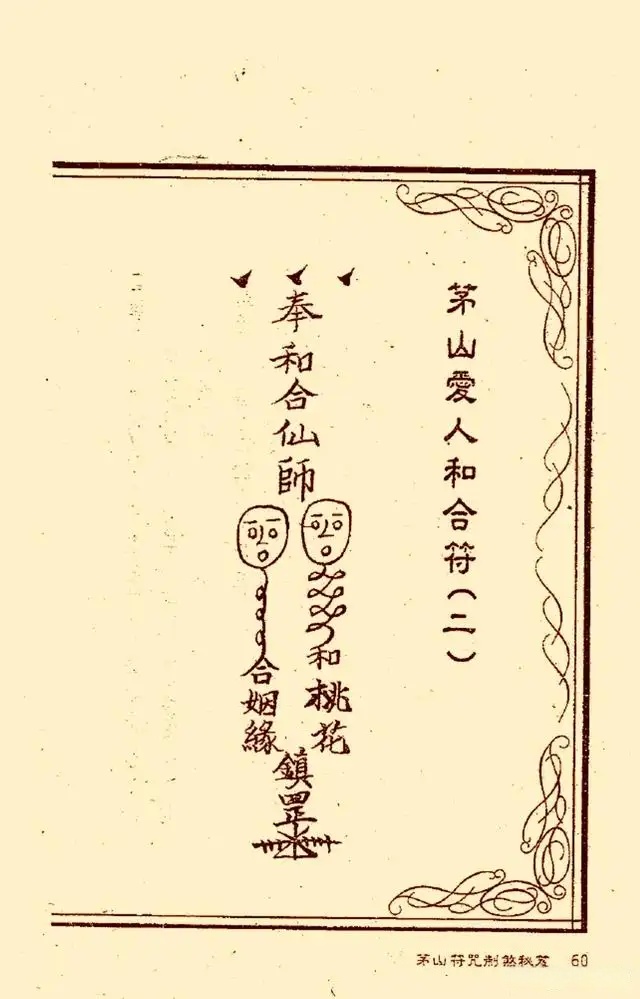 茅山愛人和合符(二)
奉和合仙師
和桃花
合姻緣
鎮罡
茅山符咒制煞秘笈 60